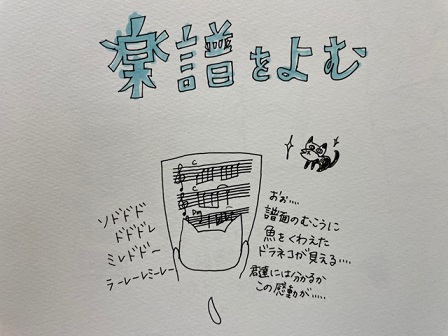 楽譜をよむ
C
C
Dm
ソドドド
ドドドレ
ミレドドー
ラーレーレミーレー
おお....
譜面のむこうに
魚をくわえた
ドラネコが見える....
君達には分かるか
この感動が.....